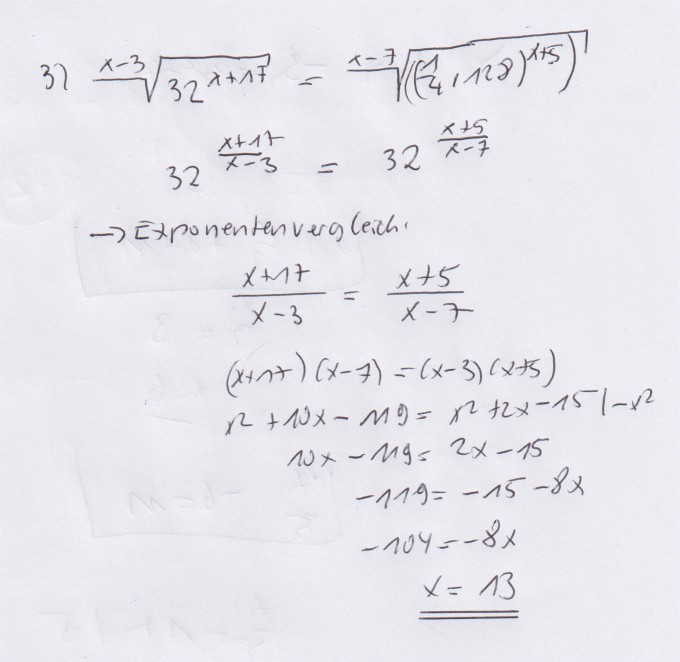 3) ˣ⁻³√(32ˣ⁺¹⁷) = ˣ⁻⁷√((1/4 · 128)ˣ⁺⁵)
32^((x+17)/(x-3)) = 32^((x+5)/(x-7))
→ Exponentenvergleich.
(x+17)/(x-3) = (x+5)/(x-7)
(x+17)(x-7) = (x-3)(x+5)
x² + 10x - 119 = x² + 2x - 15 | -x²
10x - 119 = 2x - 15
-119 = -15 - 8x
-104 = -8x
x = 13